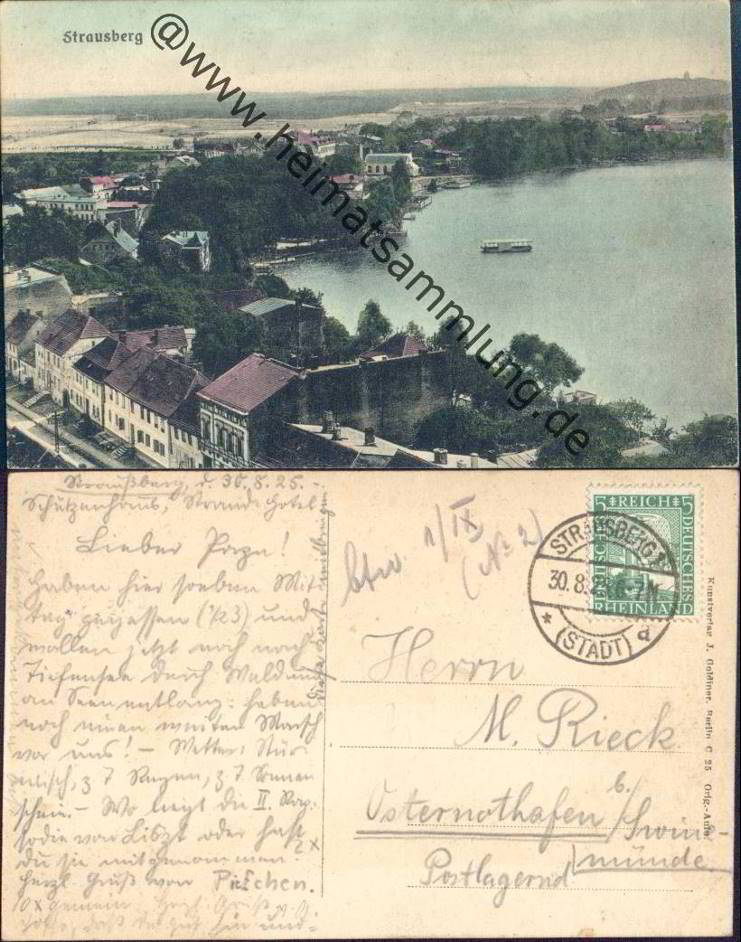 Strausberg
@www.heimatsammlung.de
Straußberg, d. 30.8.25.-
Schützenhaus, Strand-Hotel
Lieber Papa!
Haben hier soeben Mit-
tag gegessen (½3) und
wollen jetzt noch nach
Tiefensee durch Wald und
an Seen entlang: haben
noch einen weiten Marsch
vor uns! – Wetter: Stür-
misch, z T Regen, z T Sonnen
schein. – Wo liegt die II. Rap-
sodie von Liszt oder hast
du sie mitgenommen?
herzl. Gruß von
btw. 1/IX
(№ 2)
5 REICH 5
DEUTSCHES
RHEINLAND
STRAUSBERG
30.8.25 6-7N
* (STADT) a
Herrn
M. Rieck
Osternothafen b/Swine-
münde.
Postlagernd
Kunstverlag J. Goldiner, Berlin C 25 Orig.-Aufn.